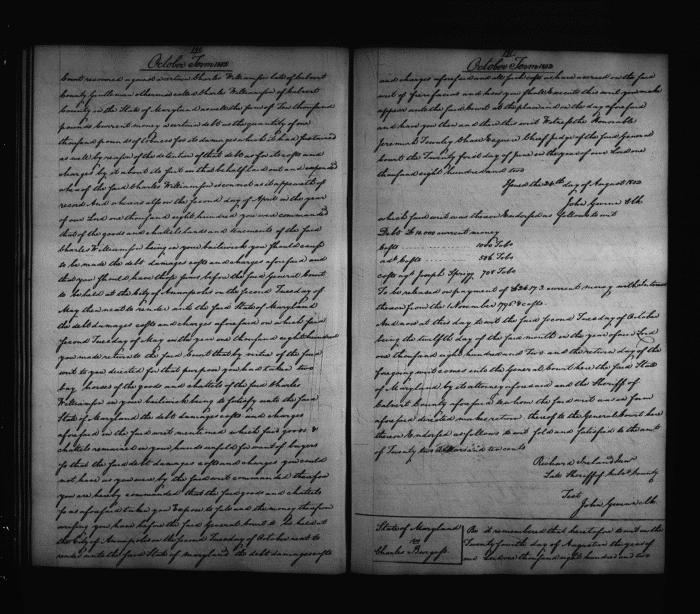 October Term 1802
Court recovered against a certain Charles Williamson late of Calvert
County Gentleman otherwise called Charles Williamson of Calvert
County in the State of Maryland as well the sum of Ten thousand
pounds current money a certain debt as the quantity of one
thousand pounds of tobacco for its damages which it had sustained
as well by reason of the detention of that debt as for its costs and
charges by it about its suit in that behalf laid out and expended
whereof the said Charles Williamson is convict as it appears of
record And whereas also on the second day of April in the year
of our Lord one thousand eight hundred you were commanded
that of the goods and chattels lands and tenements of the said
Charles Williamson being in your bailiwick you should cause
to be made the debt damages costs and charges aforesaid and
that you should have those sums before the said General Court
to be held at the City of Annapolis on the second Tuesday of
May then next to render unto the said State of Maryland
the debt damages costs and charges aforesaid on which said
second Tuesday of May in the year one thousand eight hundred
you made return to the said Court that by virtue of the said
writ to you directed for that purpose you had taken two
bay horses of the goods and chattels of the said Charles
Williamson in your bailiwick being to satisfy unto the said
State of Maryland the debt damages costs and charges
aforesaid in the said writ mentioned which said goods &
chattels remained in your hands unsold for want of buyers
so that the said debt damages costs and charges you could
not have as you were by the said writ commanded therefore
you are hereby commanded that the said goods and chattels
so as aforesaid taken you expose to sale and the money therefrom
arising you have before the said General Court to be held at
the City of Annapolis on the second Tuesday of October next to
render unto the said State of Maryland the debt damages costs
October Term 1802
and charges aforesaid and all such costs as have accrued on the said
writ of fieri facias and how you shall execute this writ you make
appear unto the said Court at the place and on the day aforesaid
and have you then and there this writ Witness the Honorable
Jeremiah Townley Chase Esquire Chief Judge of the said General
Court the Twenty first day of June in the year of our Lord one
thousand eight hundred and two
Issued the 24th day of August 1802
John Gwinn Clk
which said writ was thereon endorsed as follows to wit
Debt £10.000 current money
Costs 1000 Tobo
adl Costs 506 Tobo
Costs agt Joseph 700 Tobo
To be released on payment of current money with Interest
thereon from the 1 November & costs
And now at this day to wit the said second Tuesday of October
being the twelfth day of the said month in the year of our Lord
one thousand eight hundred and Two and the return day of the
foregoing writ comes into the General Court here the said State
of Maryland by its attorney aforesaid and the Sheriff of
Calvert County aforesaid to whom the said writ was in form
aforesaid directed makes return thereof to the General Court here
thereon endorsed as follows to wit sold and satisfied to the amt
of Twenty two dollars and two cents
Richard Ireland
Late Sheriff of Calvt County
Test
John Gwinn Clk
State of Maryland
vs
Charles Burgess
Be it remembered that heretofore to wit on the
Twenty fourth day of August in the year of
our Lord one thousand eight hundred and two